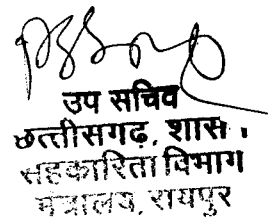 उप सचिव
छत्तीसगढ़, शास.
सहकारिता विभाग
मंत्रालय, रायपुर